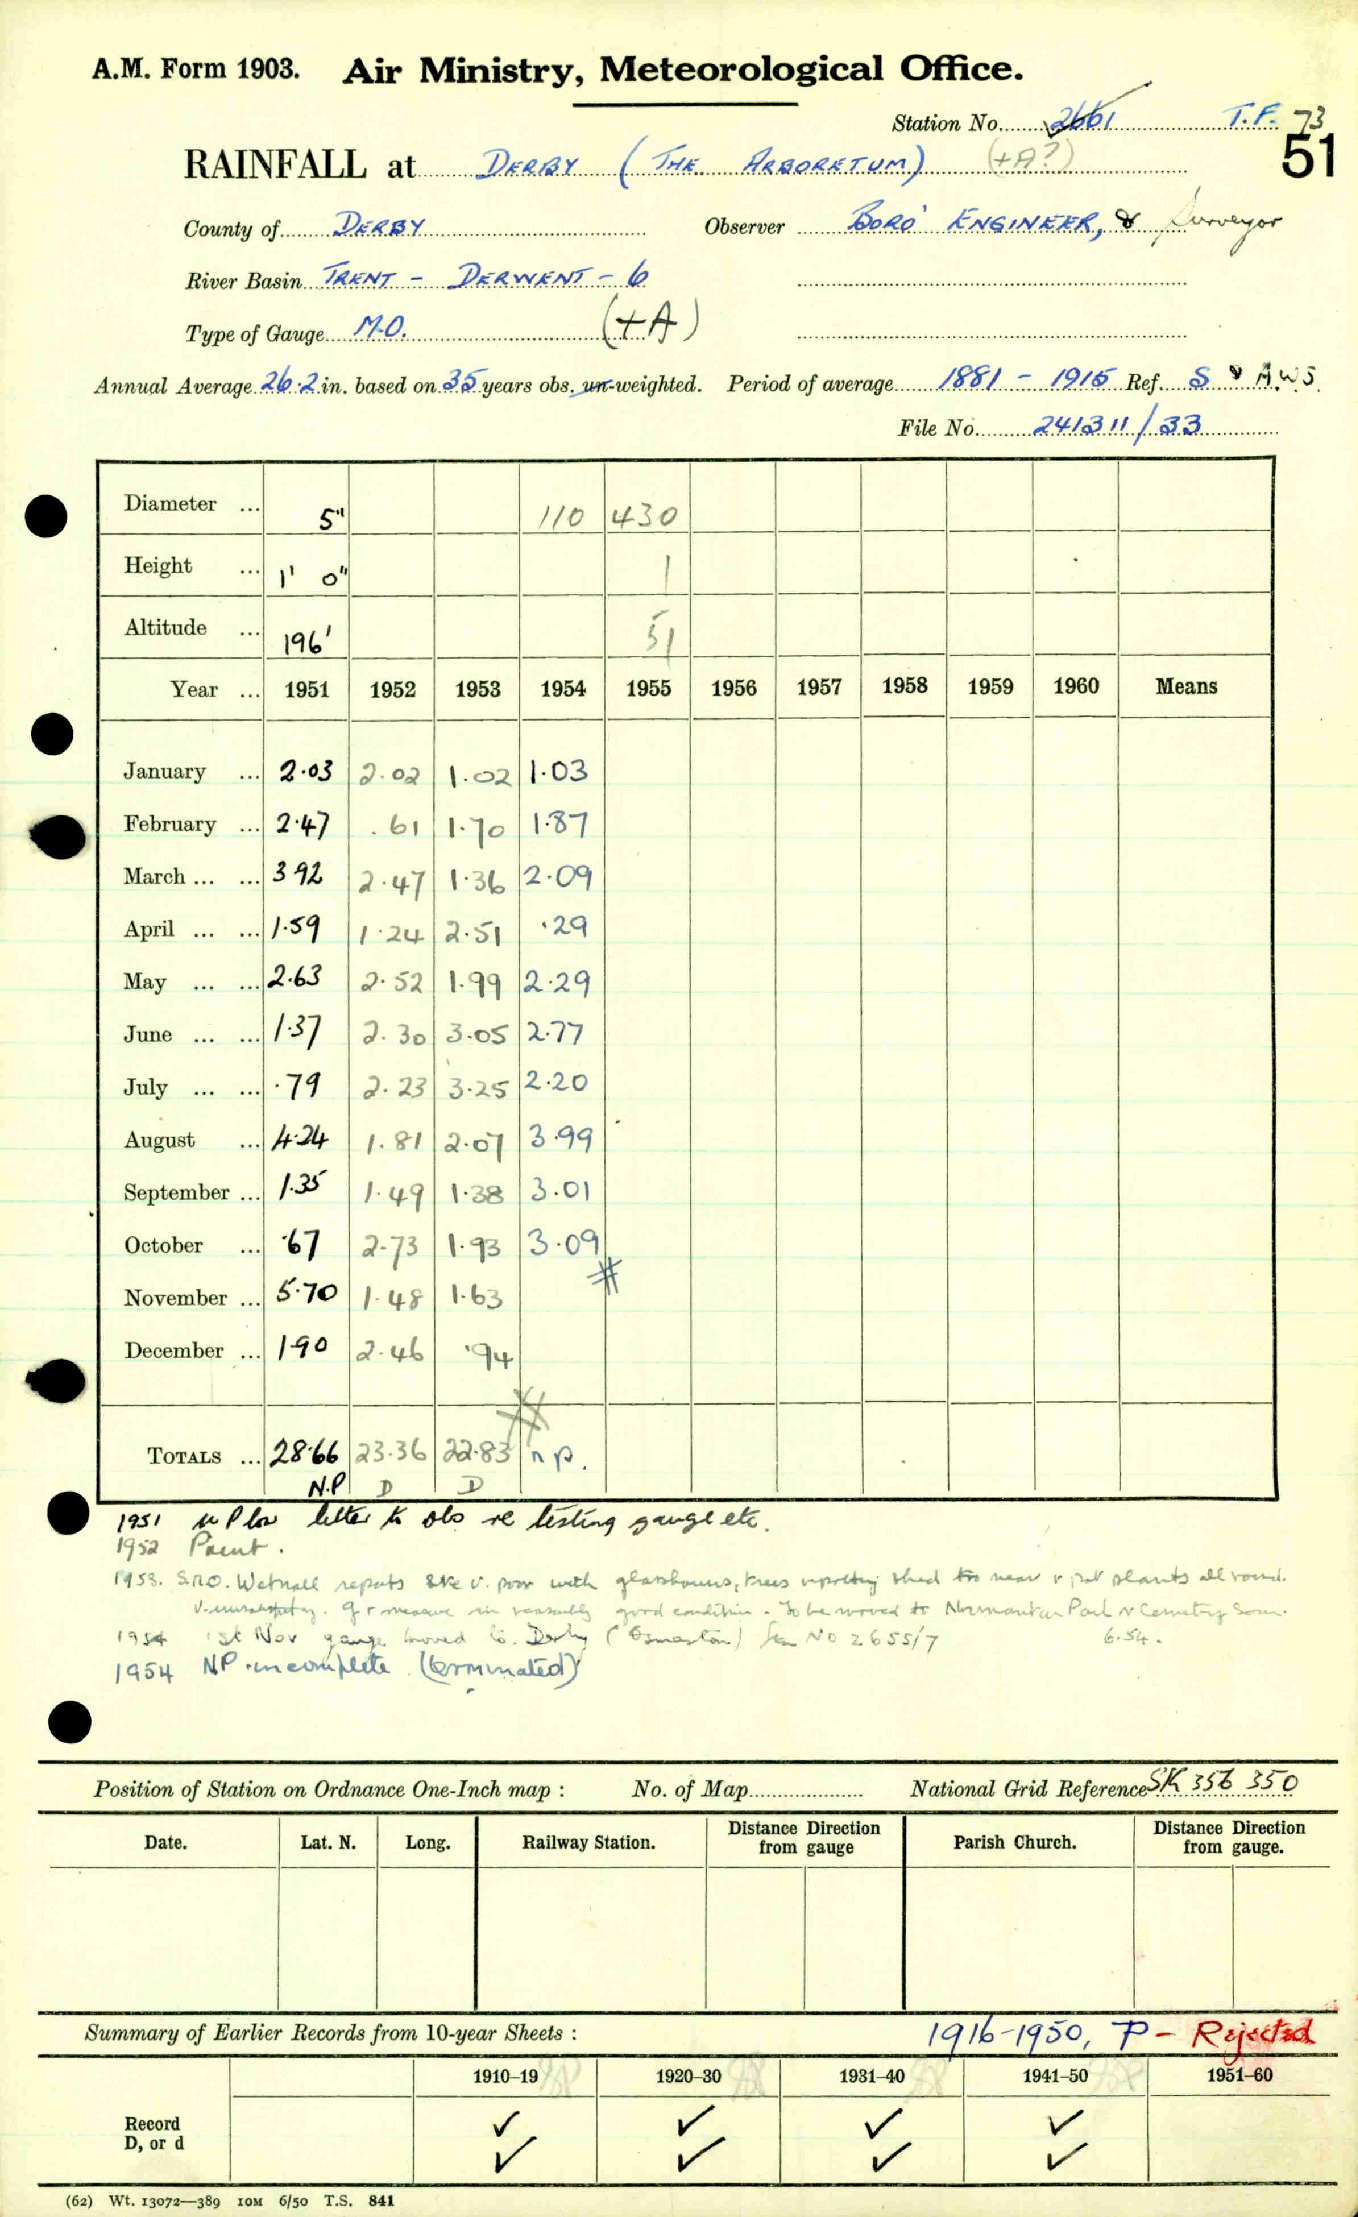 A.M. Form 1903. Air Ministry, Meteorological Office.
Station No. 2661 T.F. 73
51
RAINFALL at DERBY (THE ARBORETUM) (+A?)
County of DERBY Observer BORO' ENGINEER, & Surveyor
River Basin TRENT - DERWENT - 6
Type of Gauge M.O. (+A)
Annual Average 26.2 in. based on 35 years obs. un-weighted. Period of average 1881 - 1915 Ref. S & A.W.S.
File No. 241311/33
Diameter ... 5" 110 430
Height ... 1' 0" 1
Altitude ... 196' 51
Year ... 1951 1952 1953 1954 1955 1956 1957 1958 1959 1960 Means
January ... 2.03 2.02 1.02 1.03
February ... 2.47 .61 1.70 1.87
March ... ... 3 92 2.47 1.36 2.09
April ... ... 1.59 1.24 2.51 .29
May ... ... 2.63 2.52 1.99 2.29
June ... ... 1.37 2.30 3.05 2.77
July ... ... .79 2.23 3.25 2.20
August ... 4.24 1.81 2.07 3.99
September ... 1.35 1.49 1.38 3.01
October ... .67 2.73 1.93 3.09
November ... 5.70 1.48 1.63
December ... 1.90 2.46 .94
TOTALS ... 28.66 23.36 22.83 n p.
N.P D D
1951 letter to obs re testing gauge etc.
1952
1953. S.R.O. Wetnall reports site v. poor with glasshouses, trees shed too near plants all round.
gauge & measure in reasonably good condition. To be moved to Normanton Park Cemetery soon.
1954 1st Nov gauge moved to Derby (Osmaston) Sta No 2655/7 6.54.
1954 NP incomplete (terminated)
Position of Station on Ordnance One-Inch map : No. of Map National Grid Reference SK 356 350
Date. Lat. N. Long. Railway Station. Distance from Direction gauge Parish Church. Distance from Direction gauge.
Summary of Earlier Records from 10-year Sheets : 1916-1950, P - Rejected
1910-19 1920-30 1931-40 1941-50 1951-60
Record ✓ ✓ ✓ ✓
D, or d ✓ ✓ ✓ ✓
(62) Wt. 13072—389 10M 6/50 T.S. 841